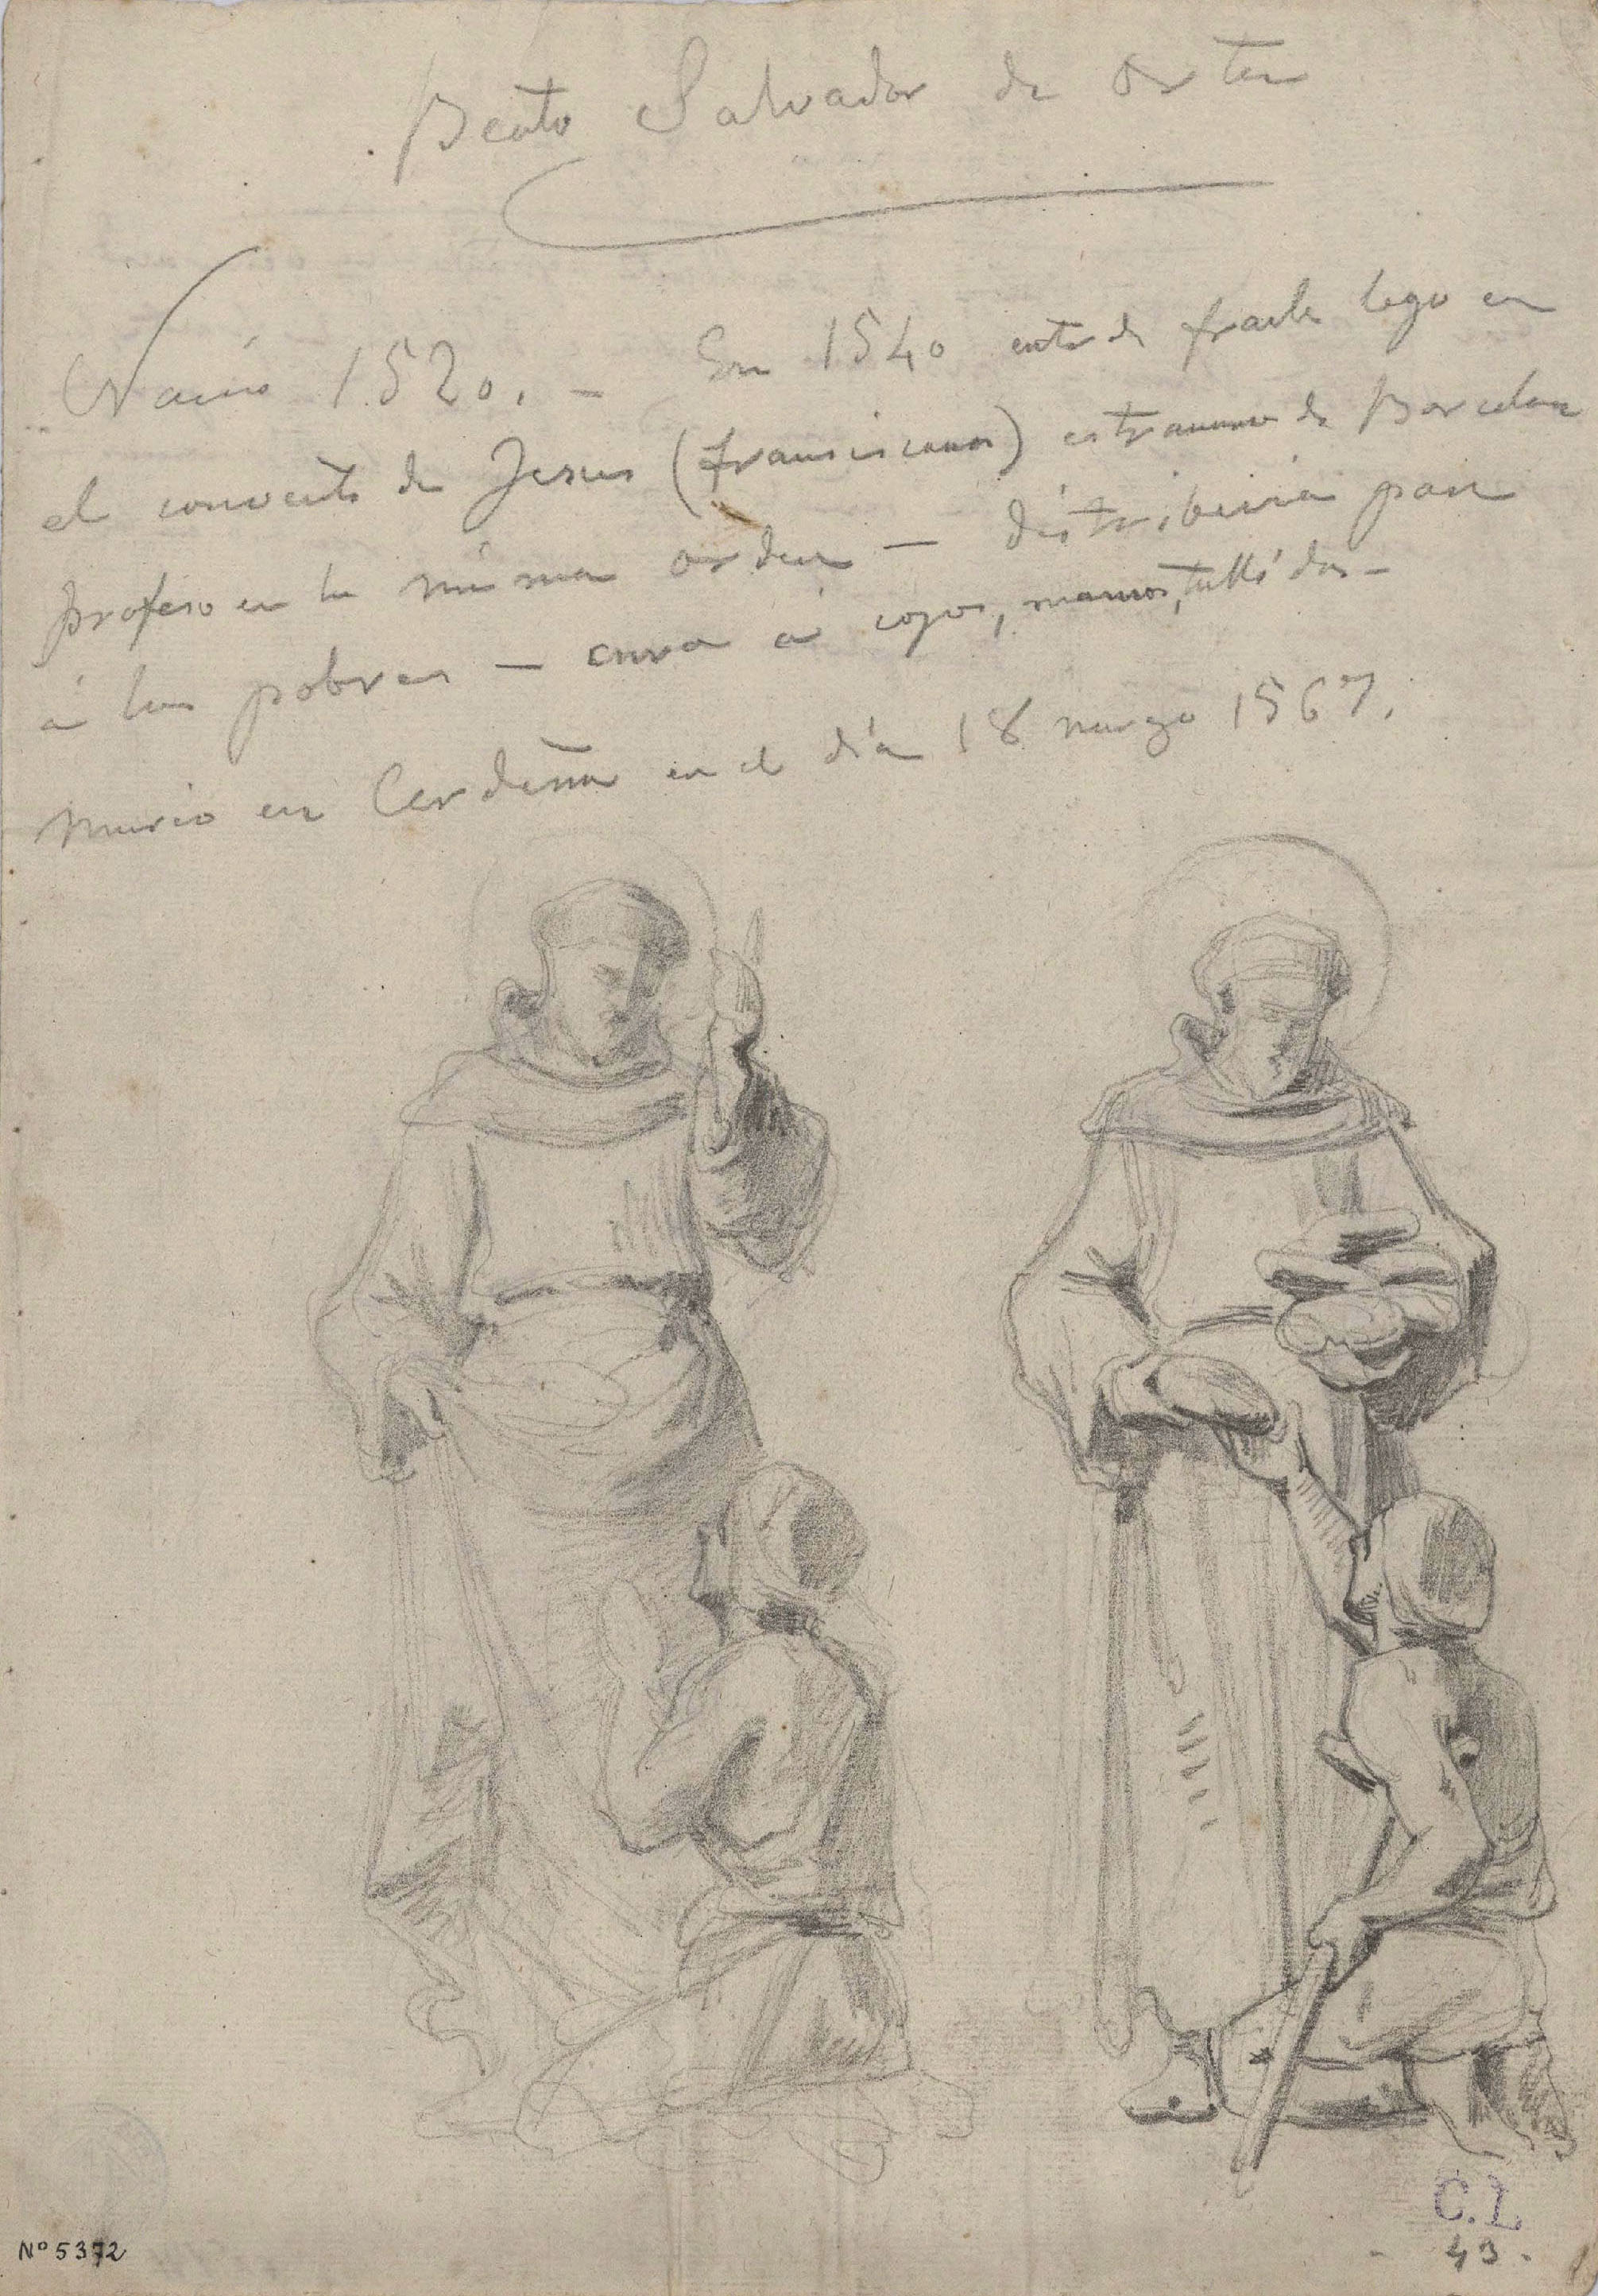 Beato Salvador de Orta
Nació 1520. — En 1540 entró de fraile lego en
el convento de Jesus (franciscanos) extramuros de Barcelona
profeso en la misma orden — distribuia pan
á los pobres — cura á cojos, mancos, tullidos —
Murio en Cerdeña en el día 18 marzo 1567.
C.L
43.
Nº 5372